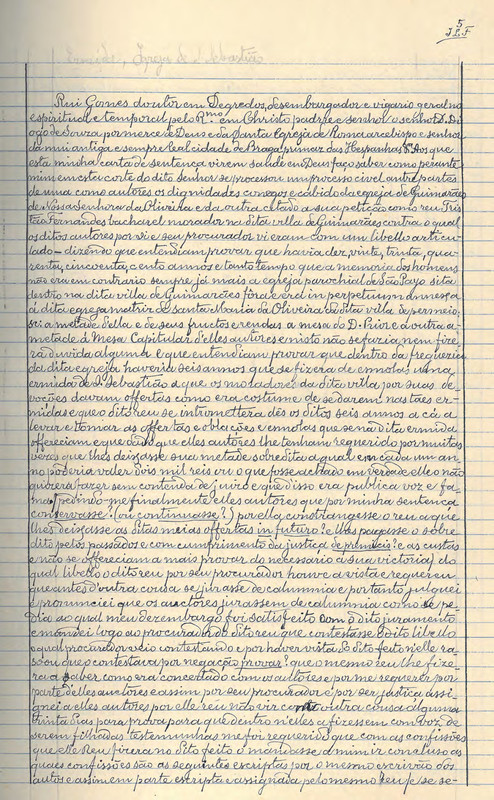 5
J.L.F
Ermidas, Igreja de S. Sebastião
Rui Gomes doutor em Degredos, desembargador e vigario geral no
espiritual e temporal pelo R.mo em Christo padre e senhor o senhor D. Di
ogo de Souza por merce de Deus e da Santa Egreja de Roma arcebispo e senhor
da mui antiga e sempre leal cidade de Braga, primaz das Hespanhas &.ª Aos que
esta minha carta de sentença virem saude em Deus faço saber como perante
mim em esta corte do dito Senhor se processou um processo civel antre partes
de uma como autores os dignidades conegos e cabido da egreja de Guimarães
de Nossa Senhora da Oliveira e da outra citado a sua petição como reu Tris
tão Fernandes bacharel morador na dita villa de Guimarães contra o qual
os ditos autores por si e seu procurador vieram com um libello articu-
lado – dizendo que entendiam provar que havia dez, vinte, trinta, qua-
renta, cincoenta, cento annos e tanto tempo que a memoria dos homens
não era em contrario sempre já mais a egreja parochial de São Payo sita
dentro na dita villa de Guimarães fôra e era in perpetuum annexa
á dita egreja matriz de Santa Maria da Oliveira da dita villa de permeio,
sc: a metade della e de seus fructos e rendas a mesa do D. Prior e a outra a-
metade á Mesa Capitular d'elles autores e n'isto não se faria, nem fize-
ra duvida alguma e que entendiam provar que dentro da freguezia
da dita egreja haveria seis annos que se fizera de esmolas uma
ermida de S. Sebastião a que os moradores da dita villa por suas de-
voções davam offertas como era costume de se darem nas taes er-
midas e que o dito reu se intromettera dês os ditos seis annos a cá a
levar e tomar as offertas e oblações e esmolas que se na dita ermida
offereciam e que dado que elles autores lhe tenham requerido por muitas
vezes que lhes deixasse sua metade sobredita a qual em cada um an-
no poderia valer dois mil reis ou o que fosse achado em verdade elle o não
quizera fazer sem contenda de juizo e que d'isso era publica voz e fa-
ma pedindo-me finalmente elles autores que por minha sentença
conservasse? (ou continuasse?) por ella constrangesse o reu a que
lhes deixasse as ditas meias offertas in futuro? e lhes pagasse o sobre
dito pelos passados e com cumprimento da justiça de premicias? e as custas
e não se offereciam a mais provar do necessario a sua victoria) do
qual libello o dito reu por seu procurador houve a vista e requereu
que antes d'outra cousa se jurasse de calumnia e portanto julguei
e pronunciei que os auctores jurassem de calumnia como se pe-
dia ao qual meu desembargo foi satisfeito com o dito juramento
e mandei logo ao procurador do dito reu que contestasse o dito libello
o qual procurador veio contestando e por haver vista do dito feito n'elle ra-
soou que o contestava por negação provar? que o mesmo reu lhe fize-
ra a saber como era concertado com os autores e por me requerer por
parte d'elles autores e assim por seu procurador e por ser justiça assi-
gnei a elles autores por elle reu não vir com outra cousa alguma
trinta dias para prova para que dentro n'elles a fizessem com voz de
serem filhadas testemunhas me foi requerido que com as confissões
que elle Reu fizera no dito feito o mandasse a mim ir concluso as
quaes confissões são as seguintes escriptas por o mesmo escrivão dos
autos e assim em parte escripta e assignada pelo mesmo Reu sc: se se-